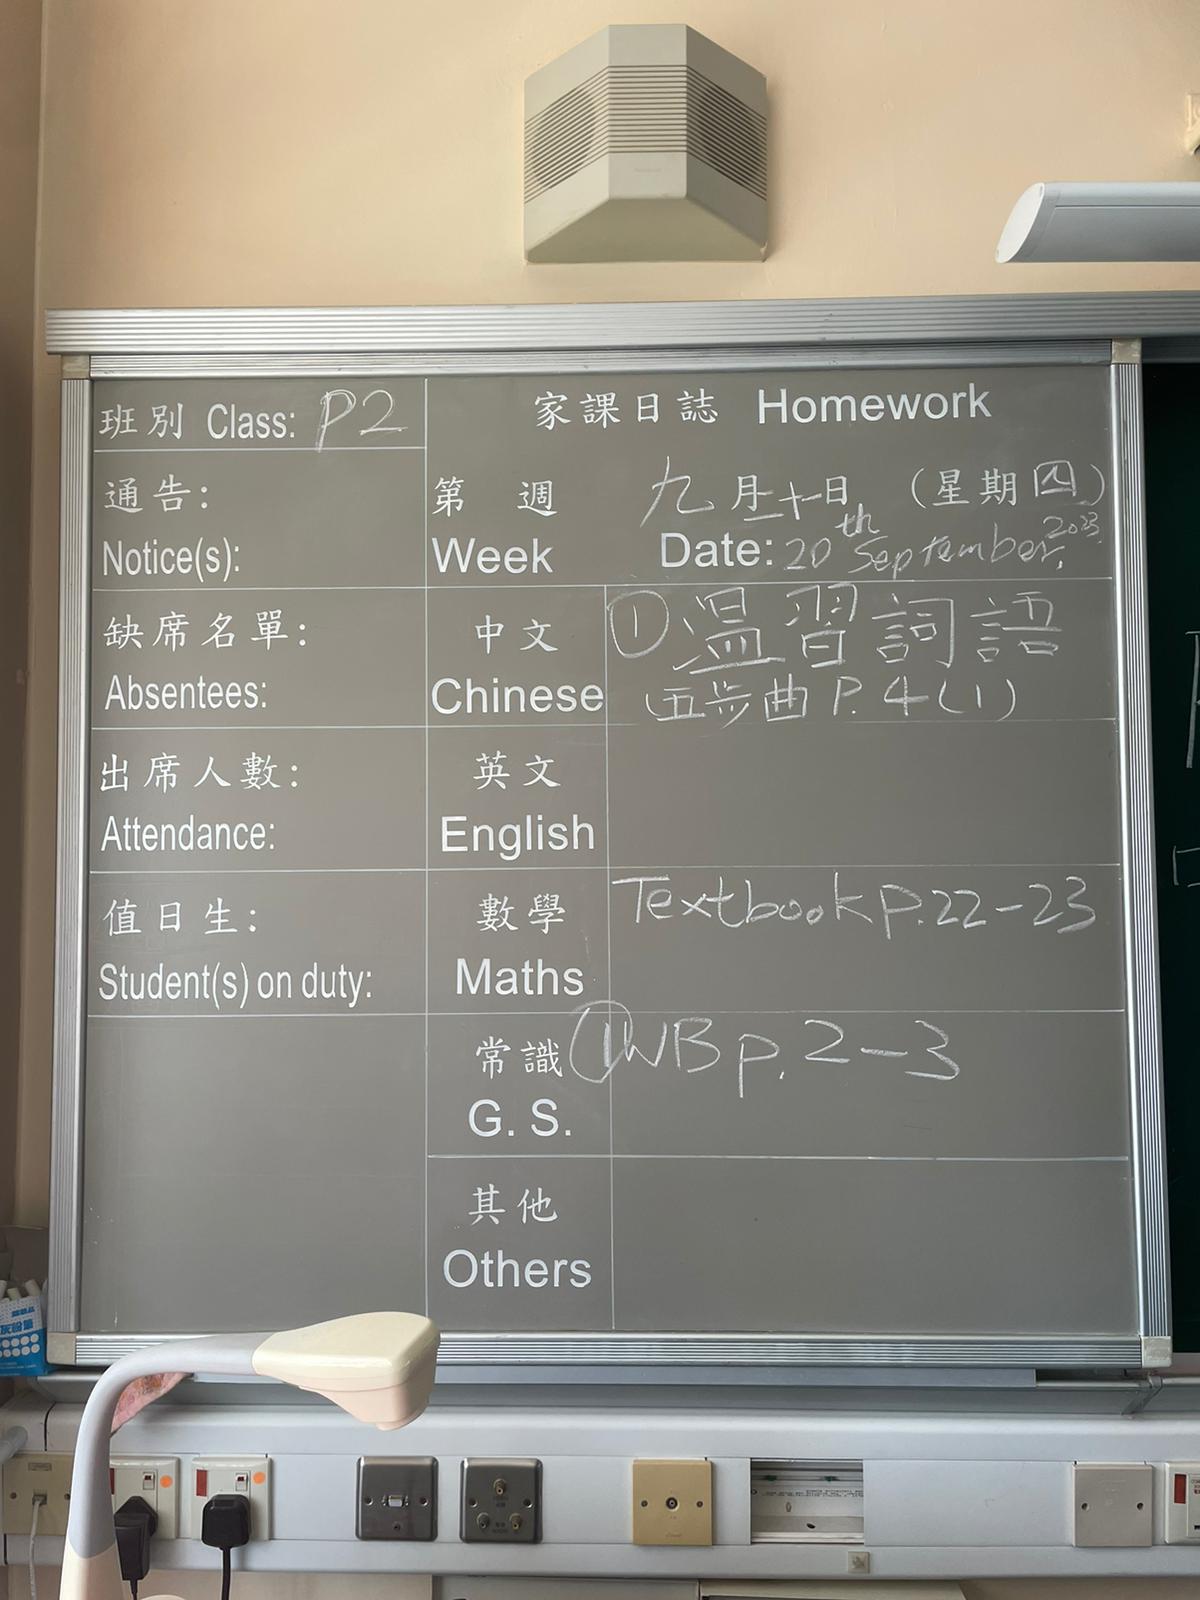 班別 Class: P2
通告:
Notice(s):
缺席名單:
Absentees:
出席人數:
Attendance:
值日生:
Student(s) on duty:
家課日誌 Homework
第 週 九月二十一日 (星期四)
Week Date: 20th September, 2023.
中文
Chinese
①溫習詞語
(五步曲P.4(1)
英文
English
數學
Maths
Textbook P.22-23
常識
G. S.
①WB p.2-3
其他
Others